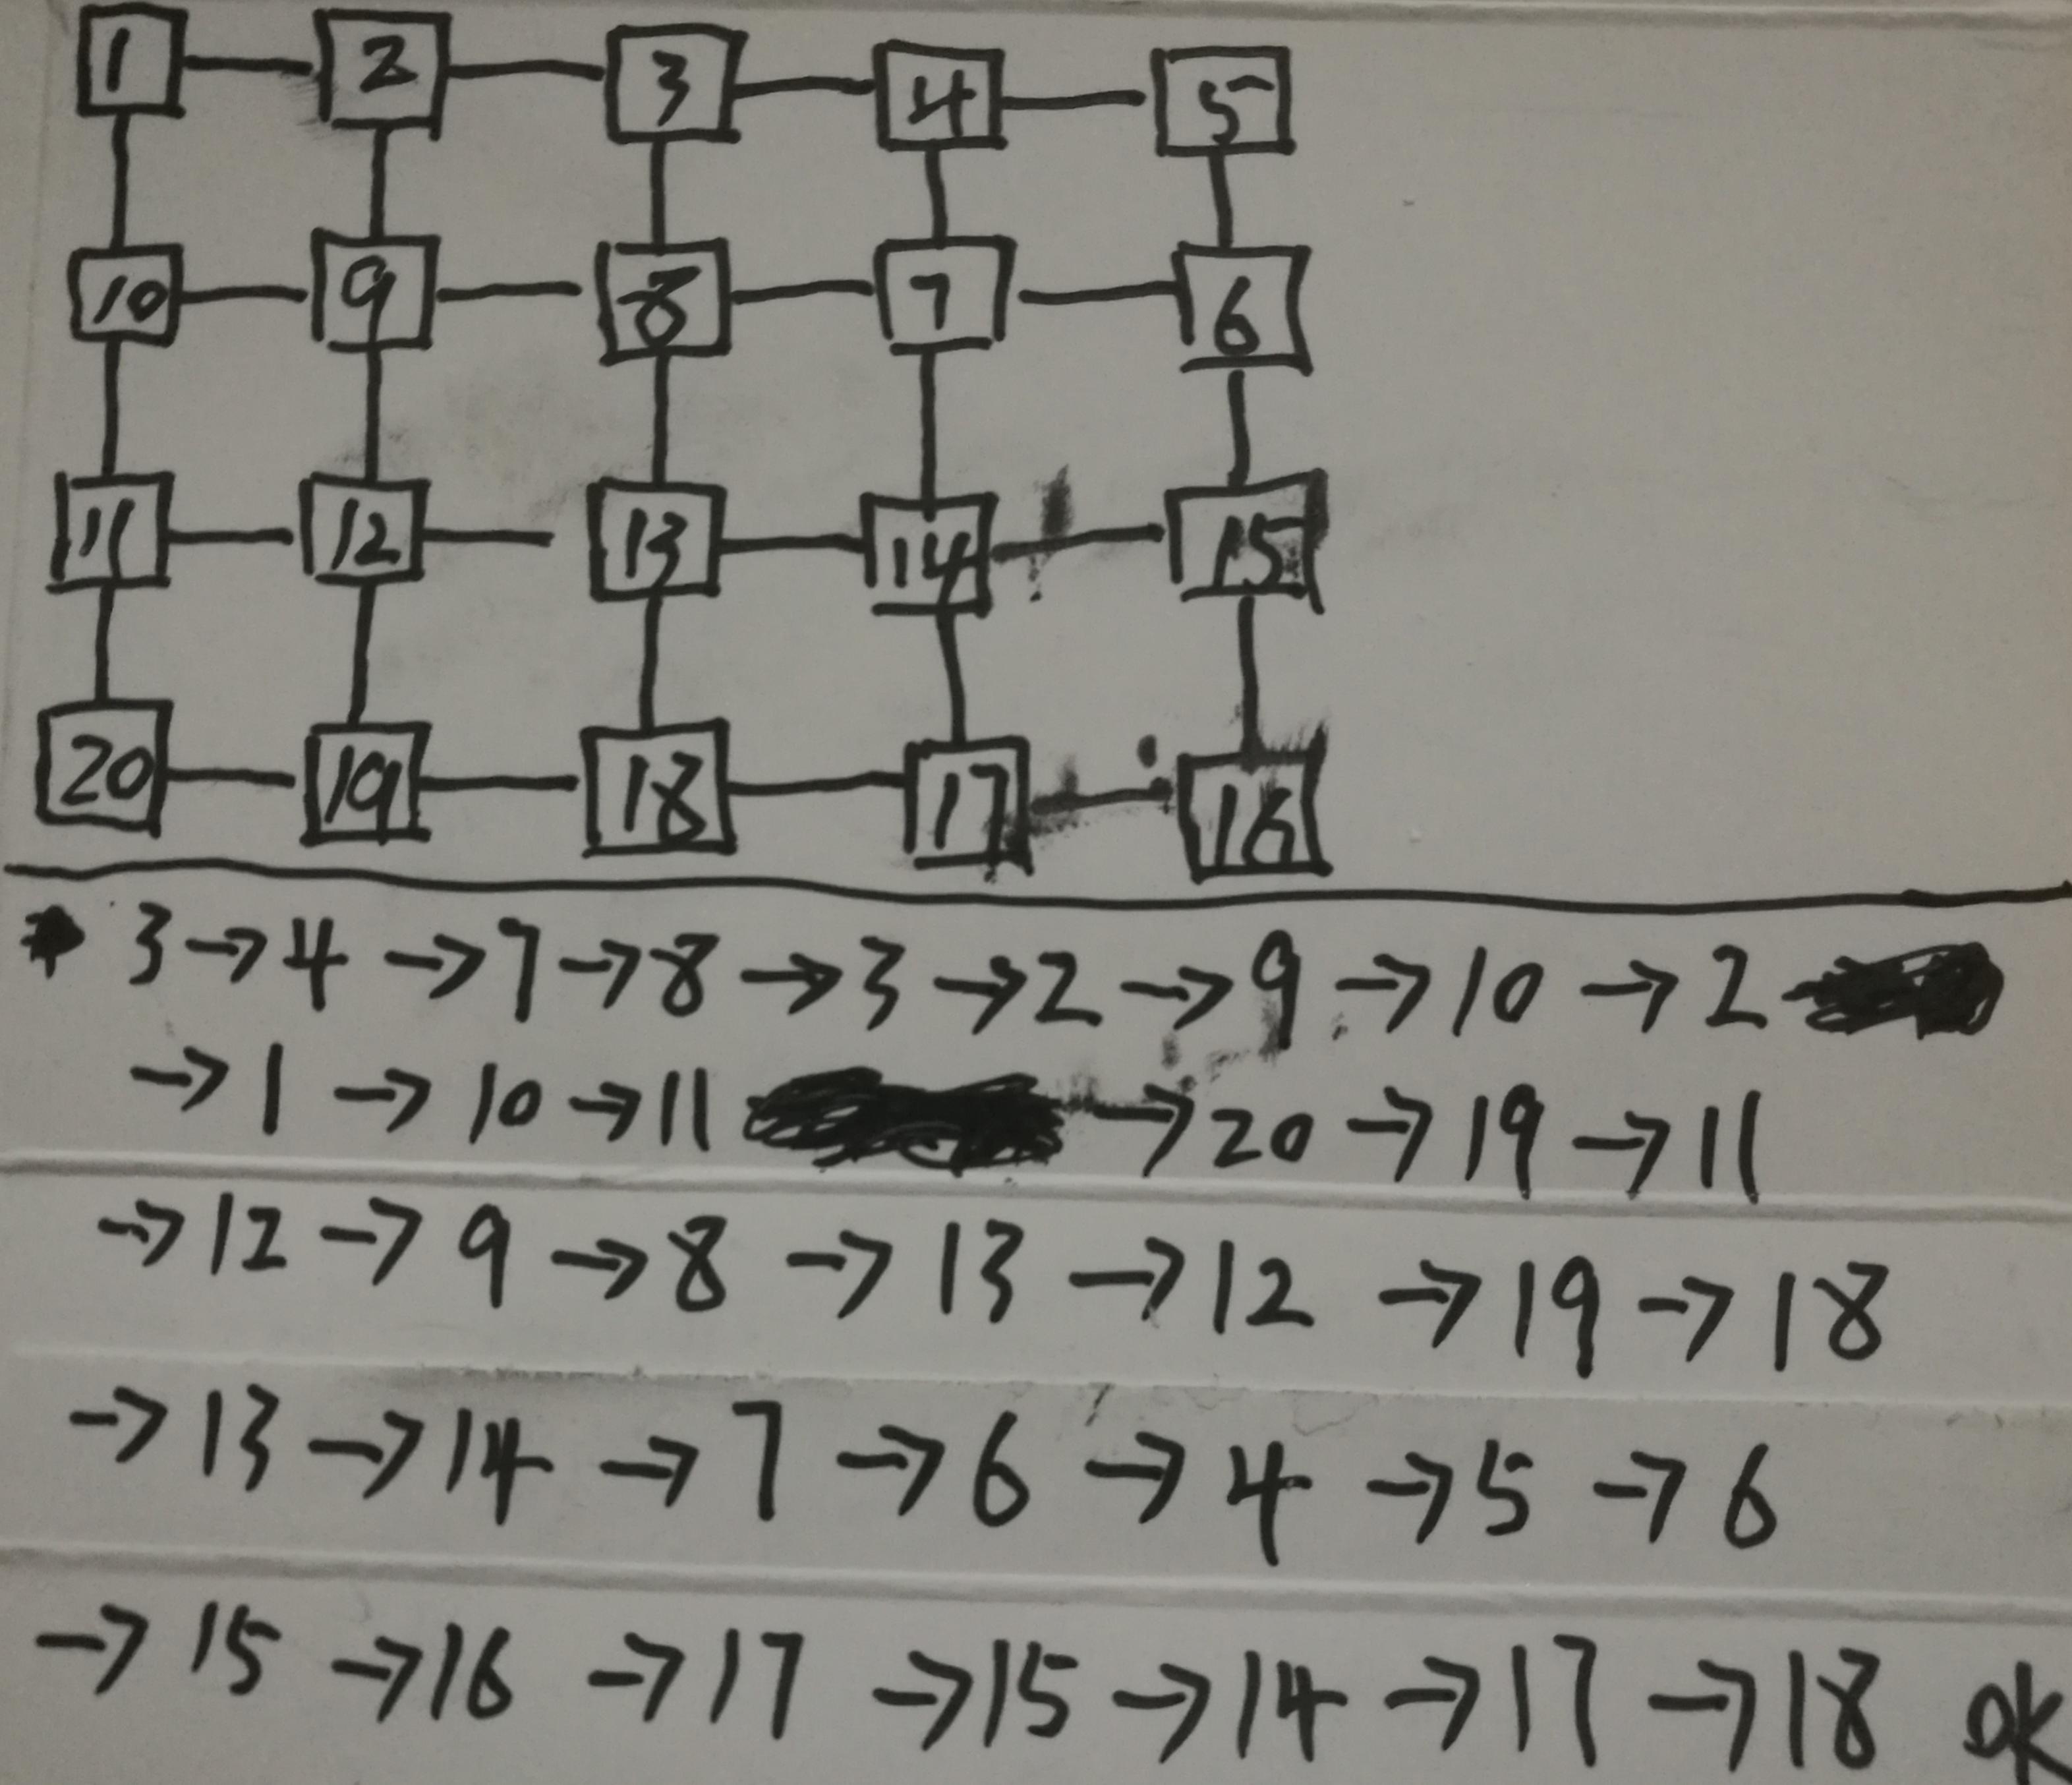 1 2 3 4 5
10 9 8 7 6
11 12 13 14 15
20 19 18 17 16
3 → 4 → 7 → 8 → 3 → 2 → 9 → 10 → 2
→ 1 → 10 → 11 → 20 → 19 → 11
→ 12 → 9 → 8 → 13 → 12 → 19 → 18
→ 13 → 14 → 7 → 6 → 4 → 5 → 6
→ 15 → 16 → 17 → 15 → 14 → 17 → 18 OK